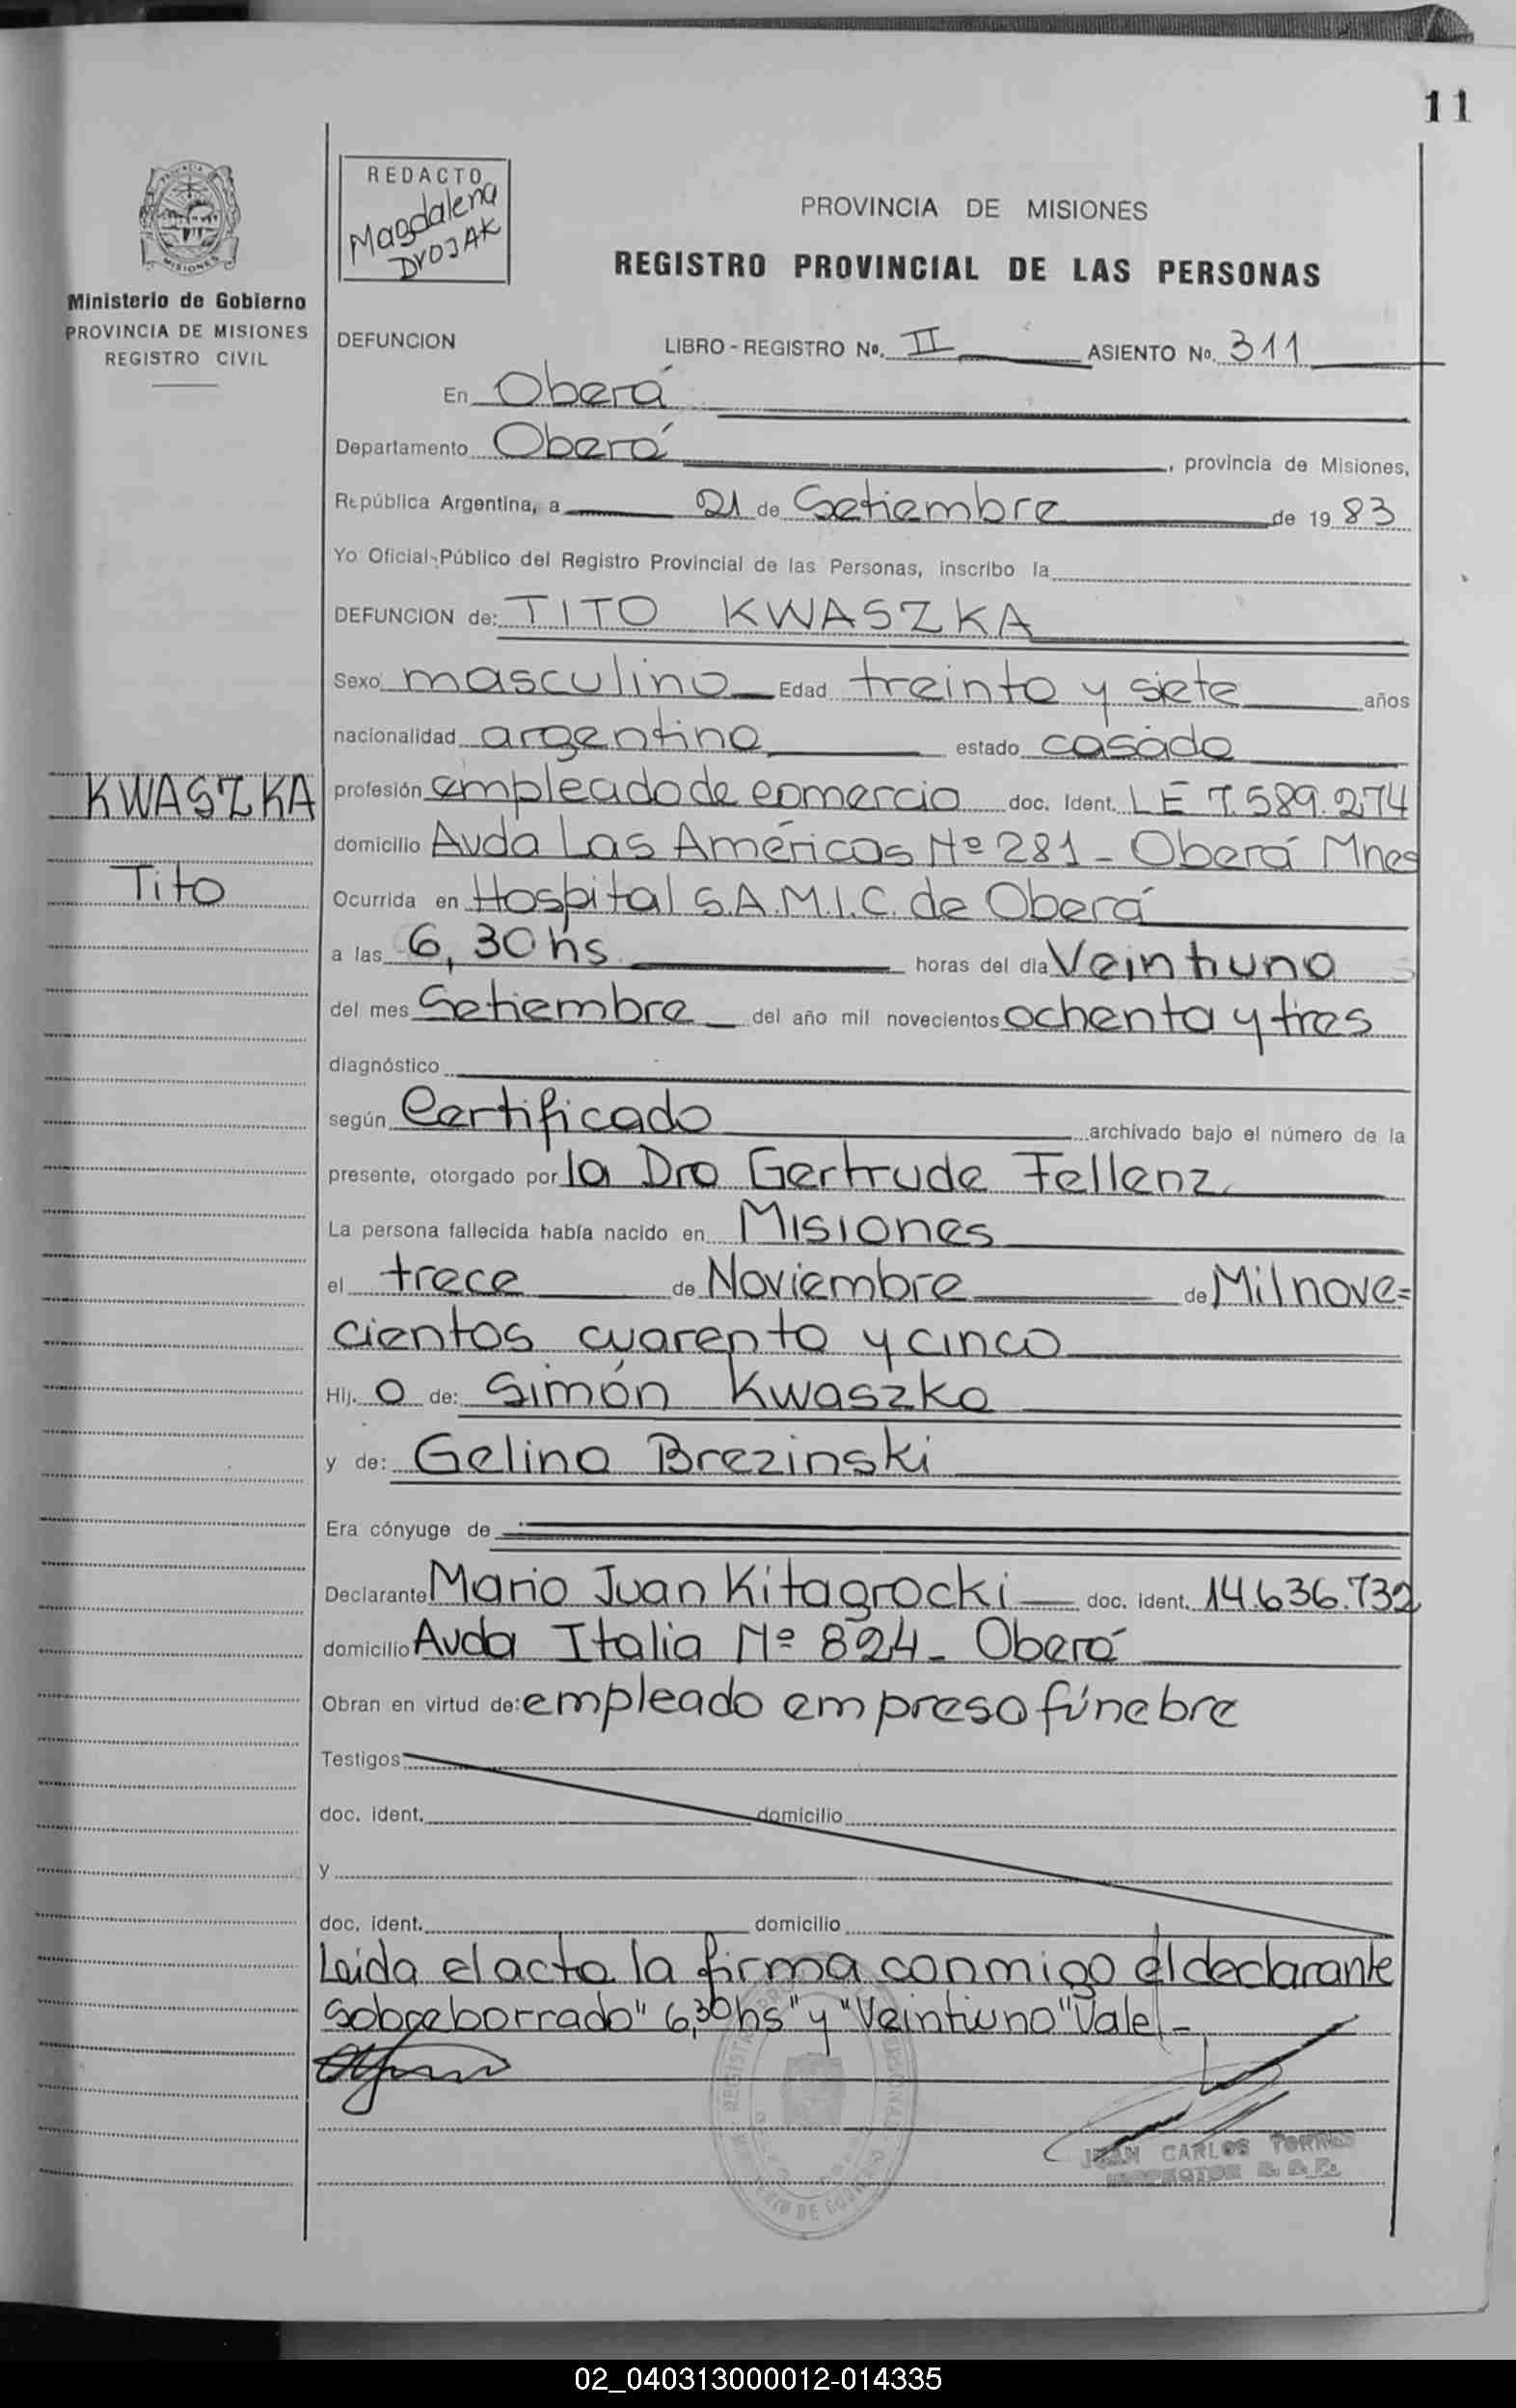 11
PROVINCIA
MISIONES
Ministerio de Gobierno
PROVINCIA DE MISIONES
REGISTRO CIVIL
REDACTO
Magdalena
DVOJAK
PROVINCIA DE MISIONES
REGISTRO PROVINCIAL DE LAS PERSONAS
DEFUNCION LIBRO - REGISTRO Nº. II ASIENTO Nº. 311
En Oberá
Departamento Oberá, provincia de Misiones,
República Argentina, a 21 de Setiembre de 1983
Yo Oficial Público del Registro Provincial de las Personas, inscribo la
DEFUNCION de: TITO KWASZKA
Sexo masculino Edad treinta y siete años
nacionalidad argentina estado casado
KWASZKA
Tito
profesión empleado de comercio doc. Ident. LE 7.589.274
domicilio Avda Las Américas Nº 281 - Oberá Mnes
Ocurrida en Hospital S.A.M.I.C. de Oberá
a las 6,30 hs horas del día Veintiuno
del mes Setiembre del año mil novecientos ochenta y tres
diagnóstico
según Certificado archivado bajo el número de la
presente, otorgado por la Dra Gertrude Fellenz
La persona fallecida había nacido en Misiones
el trece de Noviembre de Mil nove=
cientos cuarenta y cinco
Hij. o de: Simón Kwaszka
y de: Gelina Brezinski
Era cónyuge de
Declarante Mario Juan Kitagrocki doc. ident. 14.636.732
domicilio Avda Italia Nº 824 - Oberá
Obran en virtud de: empleado empresa fúnebre
Testigos
doc. ident. domicilio
y
doc. ident. domicilio
Leida el acta la firma conmigo el declarante
Sobreborrado "6,30 hs" y "Veintiuno" Vale -
JUAN CARLOS TORRES
INSPECTOR
02_040313000012-014335